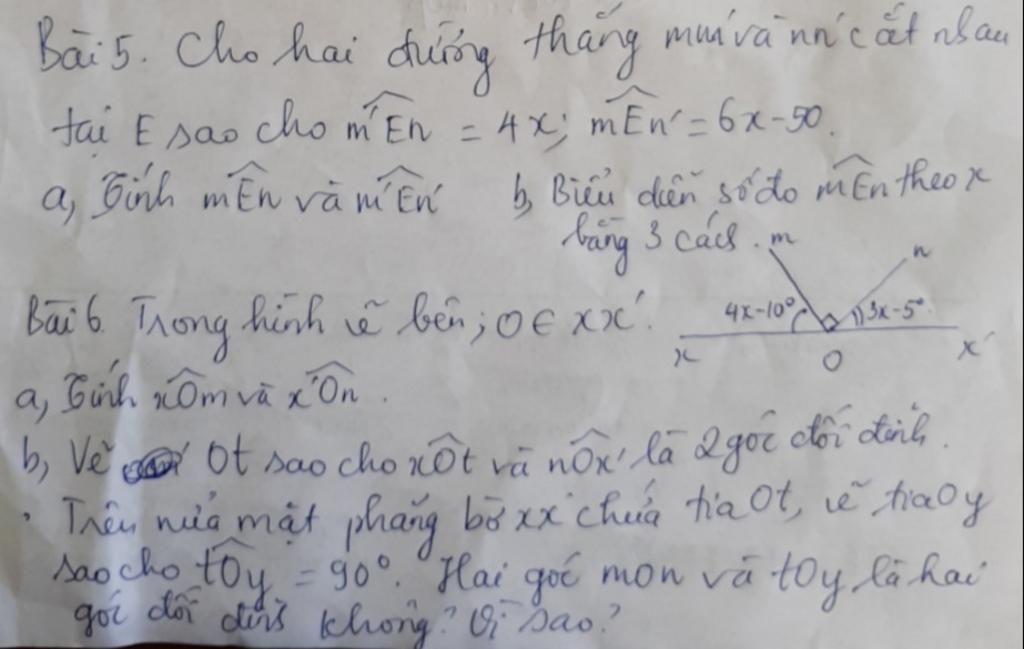 Bài 5. Cho hai đường thẳng mm' và nn' cắt nhau
tại E sao cho m'Ên = 4x; mÊn' = 6x-50.
a, Tính mÊn và m'Ên'
b, Biểu diễn số đo mÊn theo x
bằng 3 cách.
m
n
Bài 6. Trong hình vẽ bên; O ∈ xx'.
4x-10°
3x-5°
x
O
x'
a, Tính xÔm và x'Ôn.
b, Vẽ Ot sao cho xÔt và nÔx' là 2 góc đối đỉnh.
. Trên nửa mặt phẳng bờ xx' chứa tia Ot, vẽ tia Oy
sao cho tÔy = 90°. Hai góc mon và tOy là hai
góc đối đỉnh không? Vì sao?